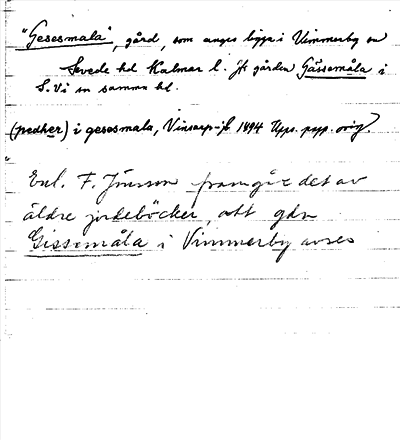 "Gesesmala", gård, som anges ligga i Vimmerby sn
Sevede hd Kalmar l. Jfr gården Gässemåla i
S. Vi sn samma hd.
(pedher) i gesesmala, Vinsarp-jb 1494 Upps. papp. orig.
Enl. F. Jönsson framgår det av
äldre jordeböcker, att gdn
Gissemåla i Vimmerby avses